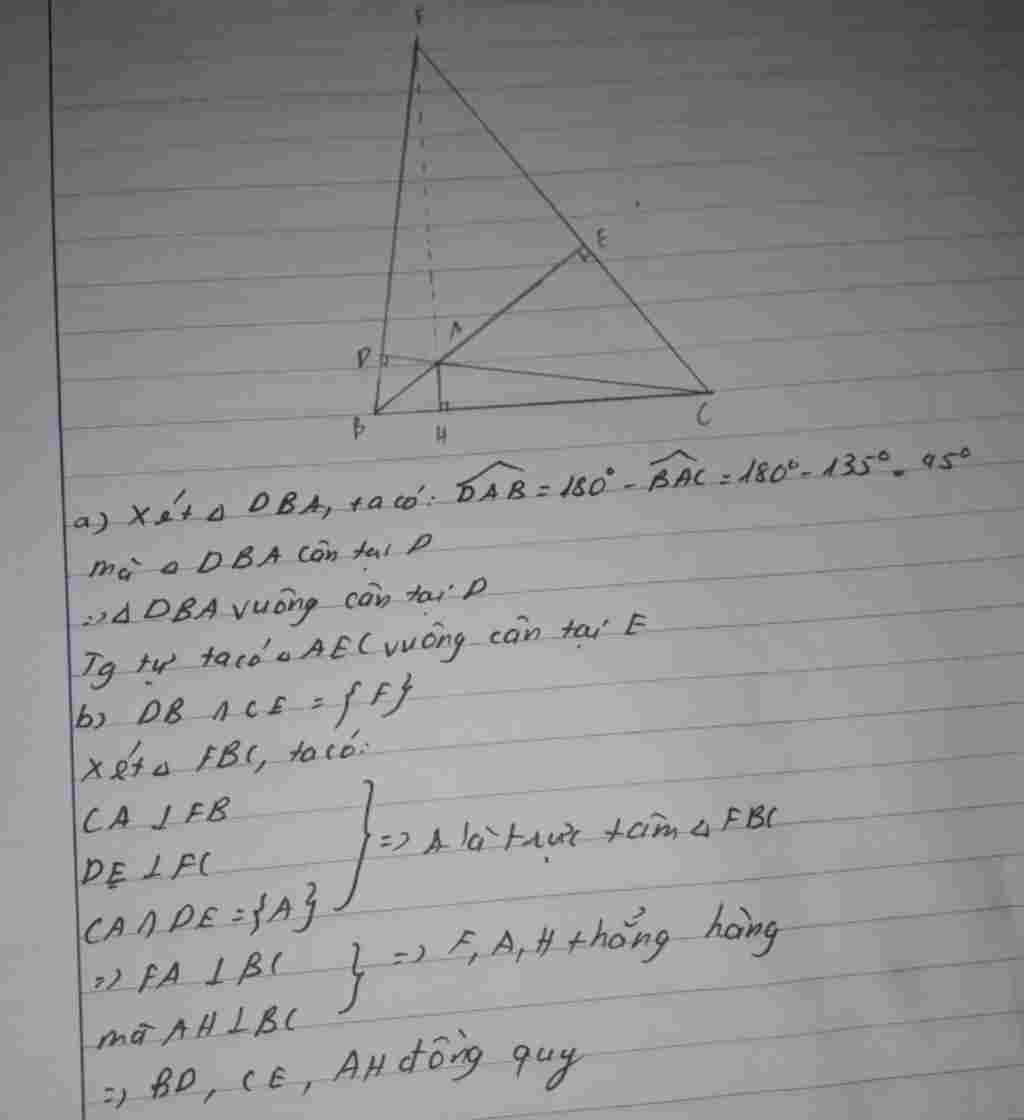 F
E
A
D
B
H
C
a) Xét △ DBA, ta có: $\widehat{DAB}$ = 180° - $\widehat{BAC}$ = 180° - 135° = 45°
mà △ DBA cân tại D
=> △ DBA vuông cân tại D
Tg tự ta có △ AEC vuông cân tại E
b) DB ∩ CE = {F}
Xét △ FBC, ta có:
CA ⊥ FB
DE ⊥ FC
CA ∩ DE = {A}
=> A là trực tâm △ FBC
=> FA ⊥ BC
mà AH ⊥ BC
=> F, A, H thẳng hàng
=> BD, CE, AH đồng quy